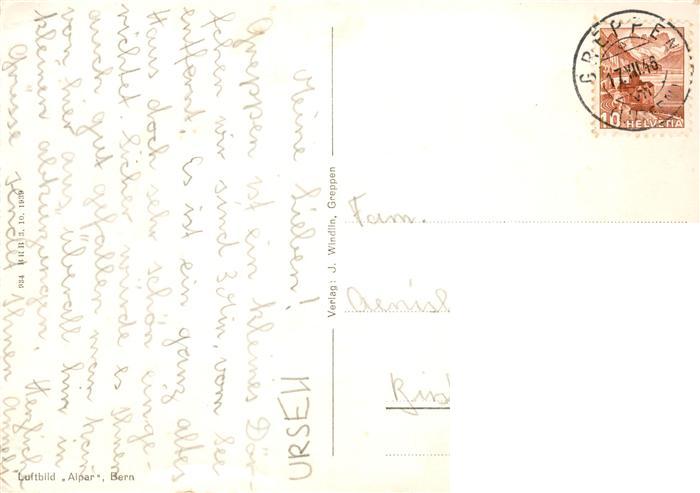 Meine Lieben!
Greppen ist ein kleines Dör-
fchen wir sind 3 Min. vom See
entfernt. Es ist ein ganz altes
Haus doch sehr schön einge-
richtet. Sicher würde es Ihnen
auch gut gefallen man kann
von hier aus überall hin in
kleinen abkürzungen. Herzlich
Grüsse sendet Ihnen Anneli
URSEN
934 BRB 3. 10. 1939
Luftbild „Alpar", Bern
Verlag: J. Windlin, Greppen
GREPPEN
17.VII.46
10 HELVETIA
Fam.